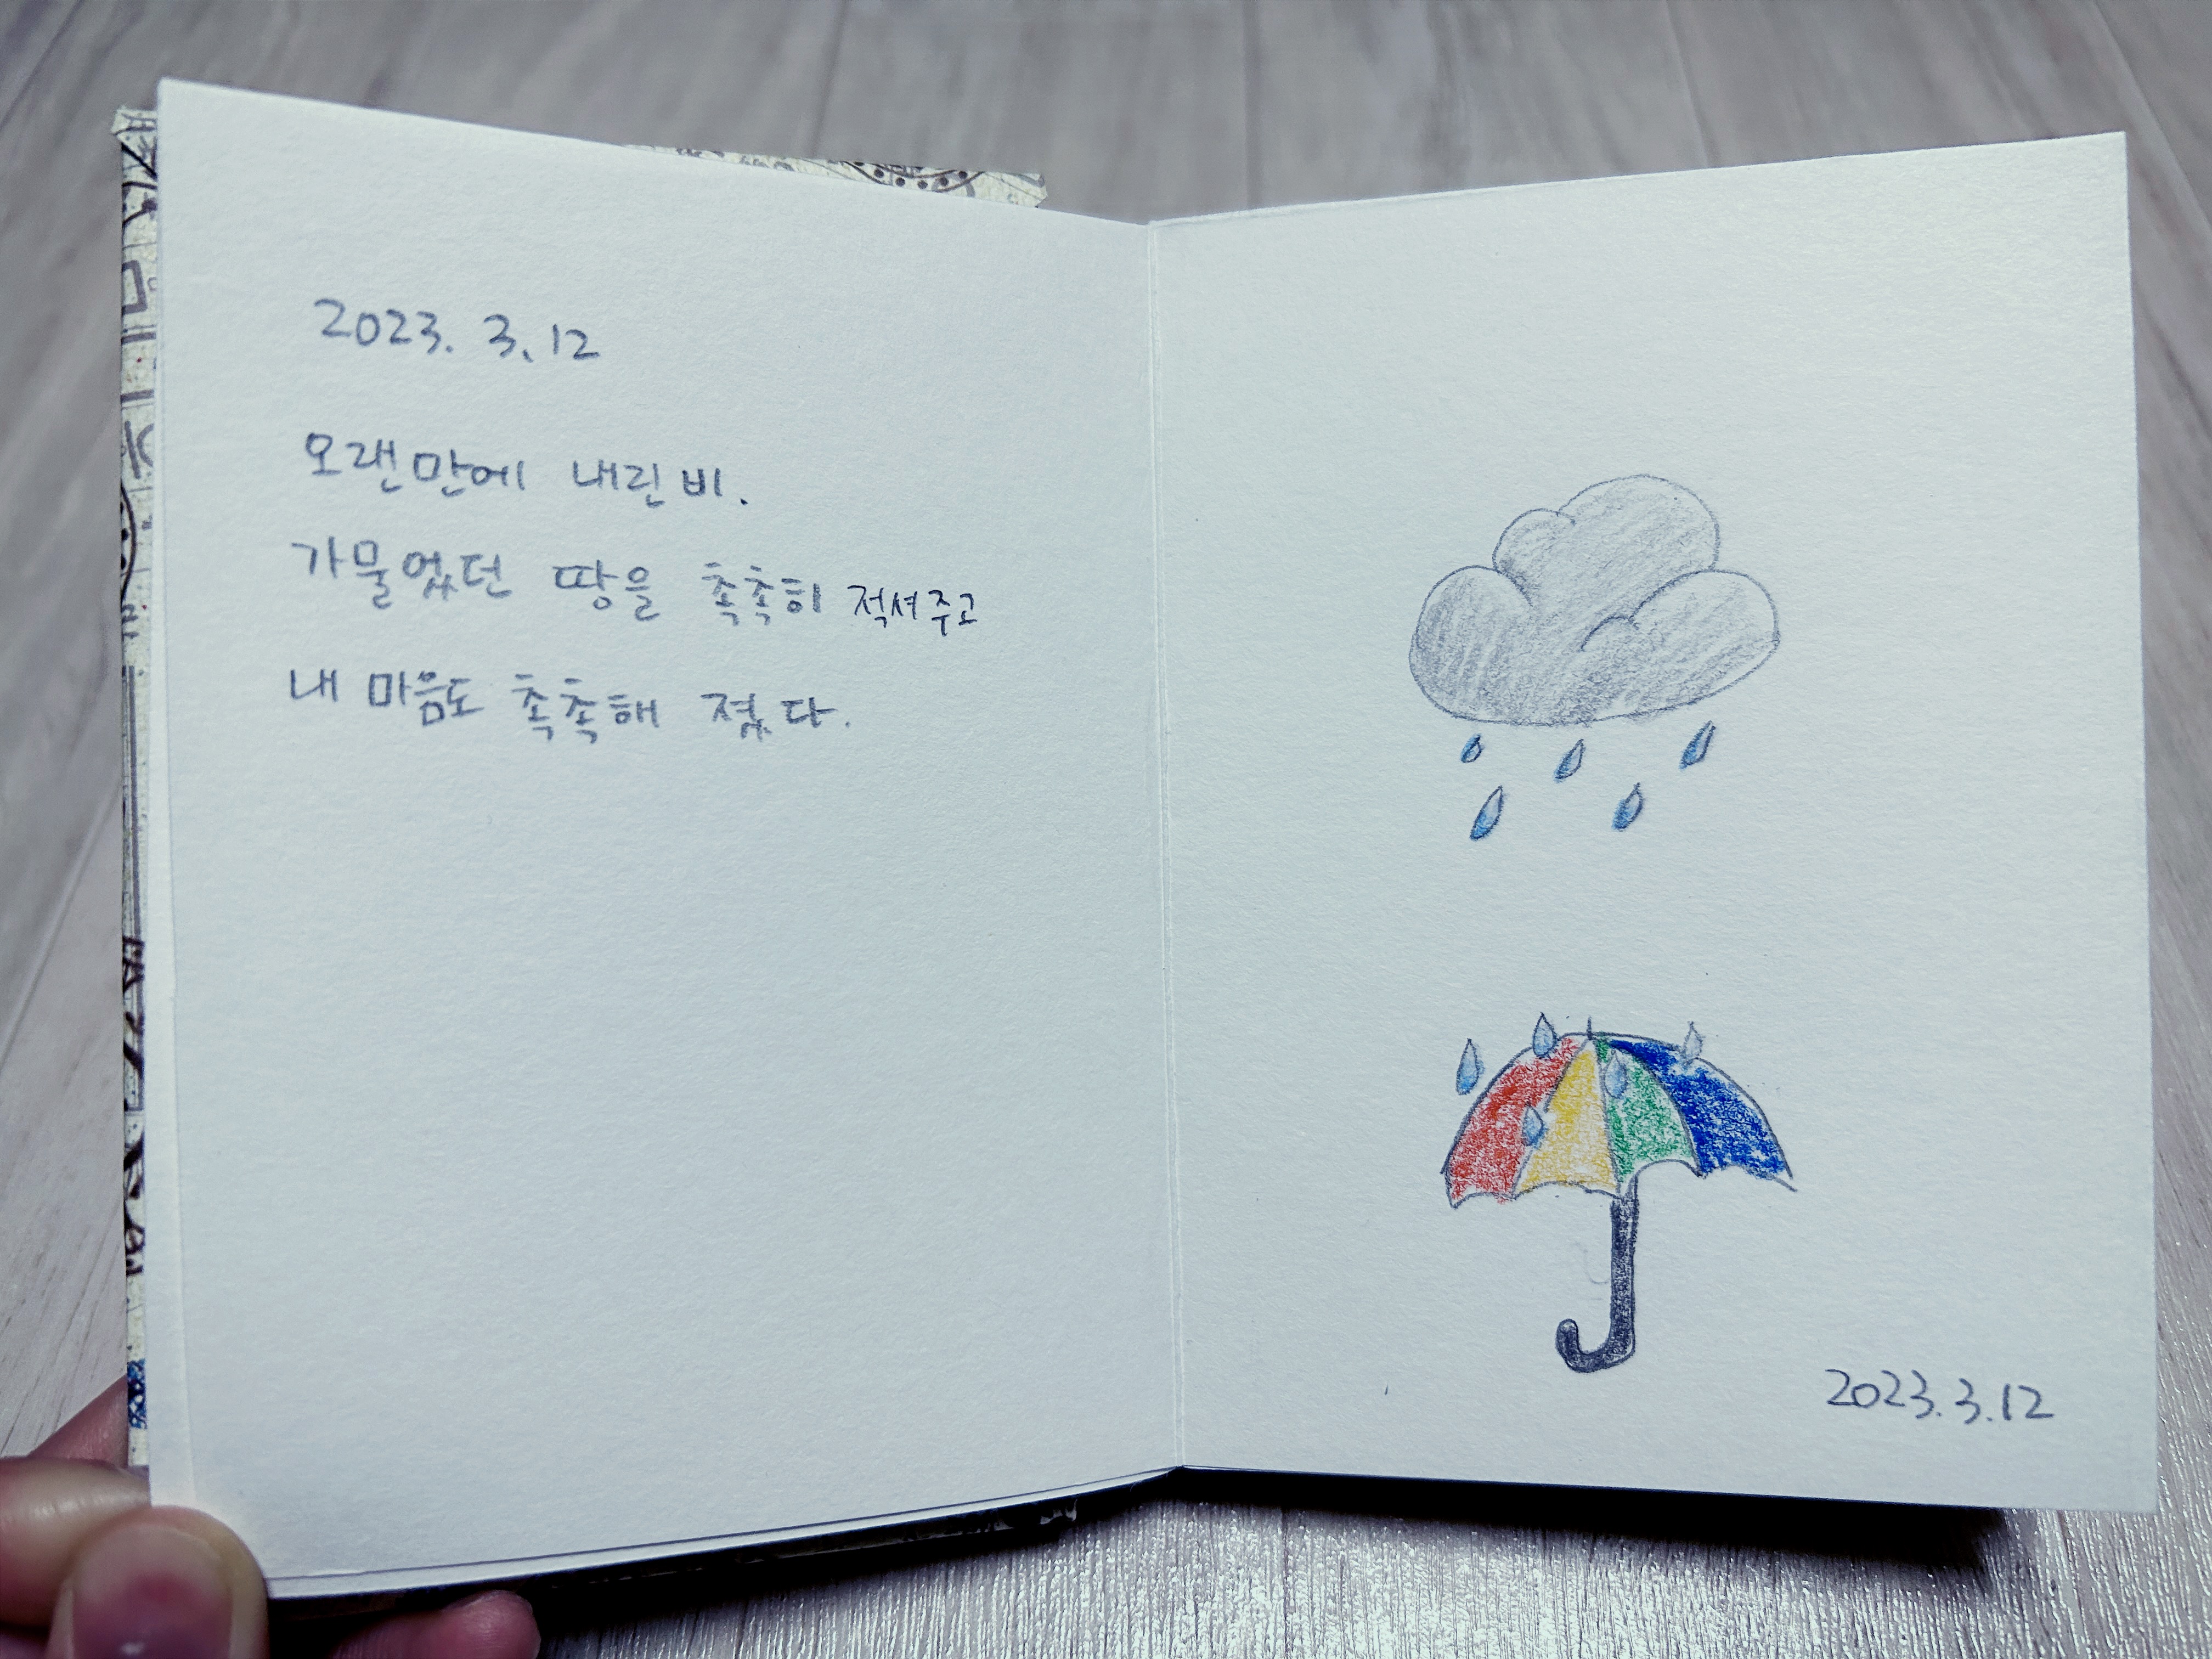 2023. 3. 12
오랜만에 내린 비.
가물었던 땅을 촉촉히 적셔주고
내 마음도 촉촉해 졌다.
2023. 3. 12